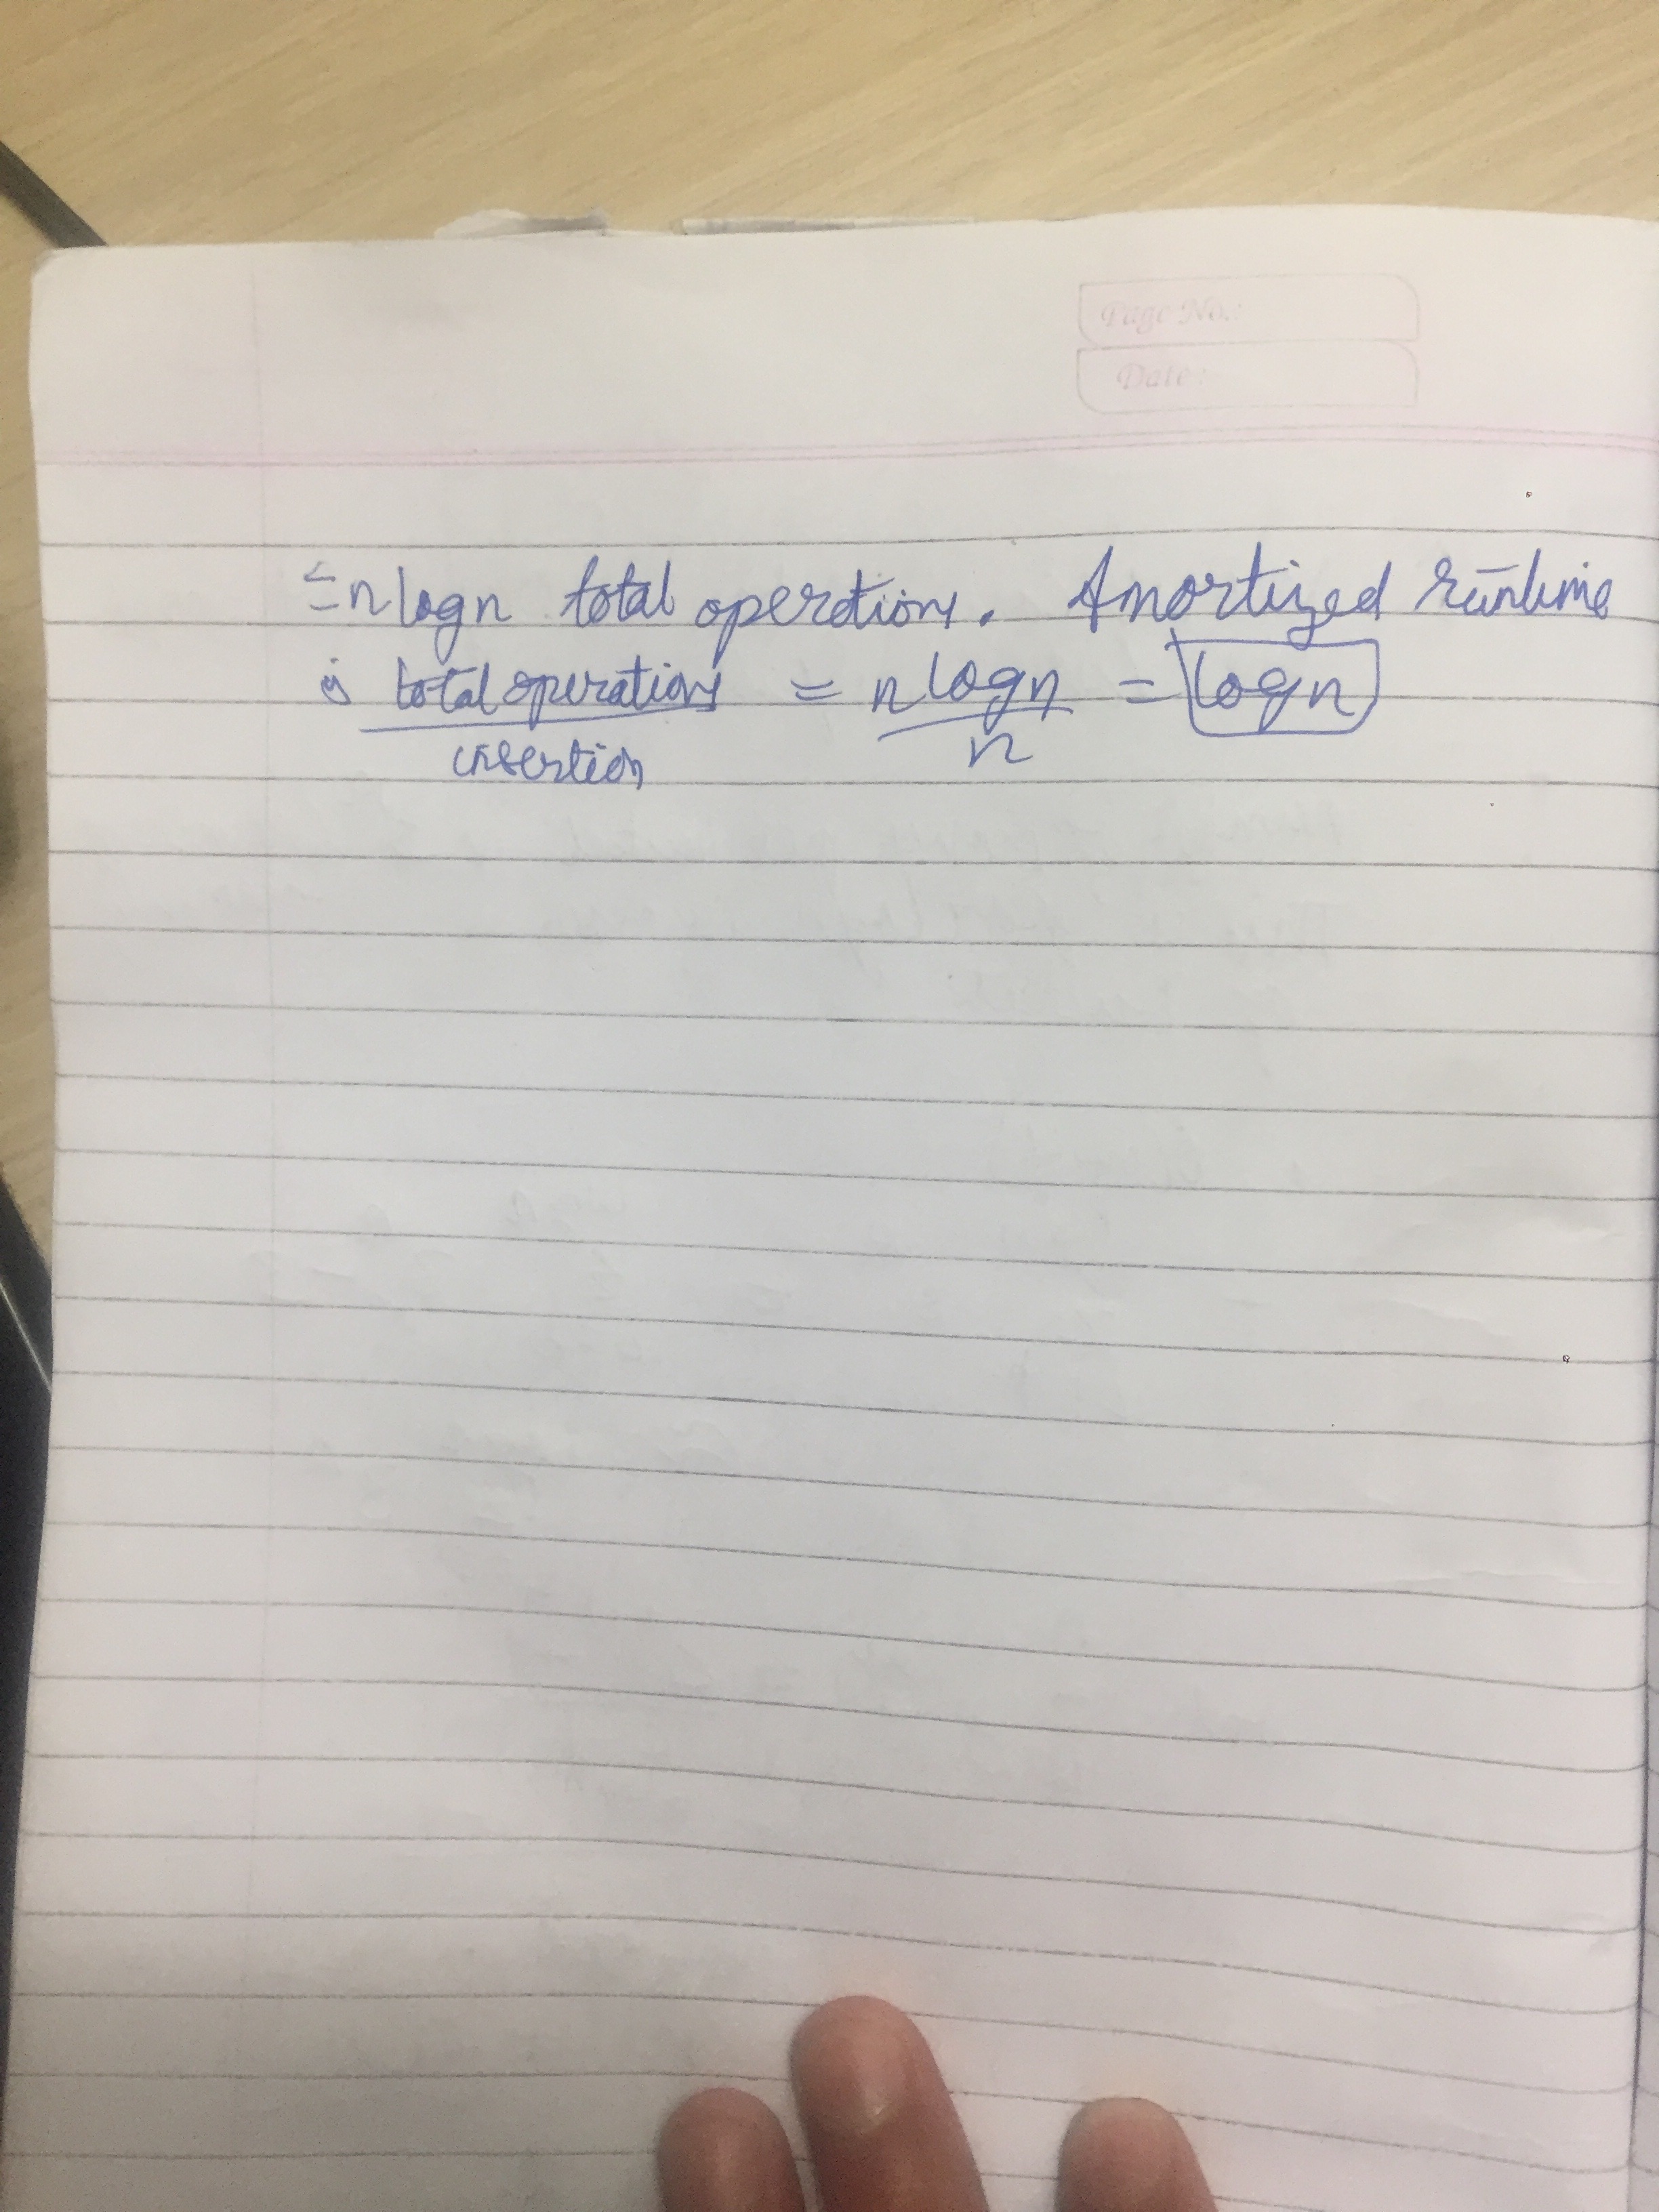 Page No.:
Date:
≤ n log n total operations. Amortized runtime
is total operations / insertion = n log n / n = log n